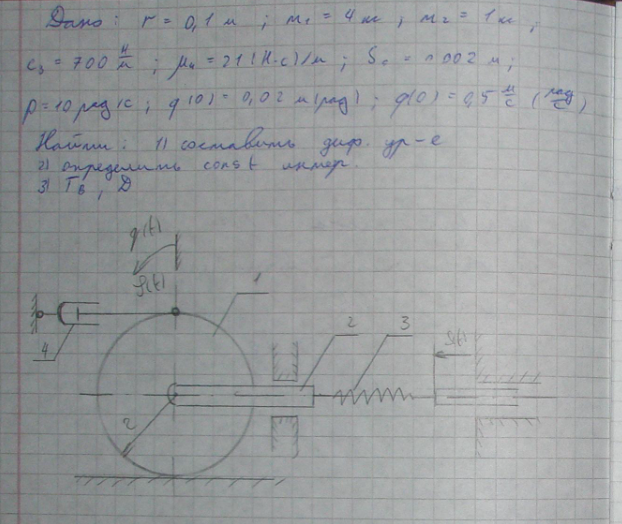 Дано: r = 0,1 м ; m₁ = 4 кг ; m₂ = 1 кг ;
c₃ = 700 Н/м ; μ₄ = 21 (Н·с)/м ; S₀ = 0.002 м ;
p = 10 рад/с ; q(0) = 0,02 м (рад) ; q̇(0) = 0,5 м/с (рад/с)
Найти: 1) составить диф. ур-е
2) определить const интегр.
3) Tв , D
q(t)
φ(t)
1
2
3
S(t)
4
r